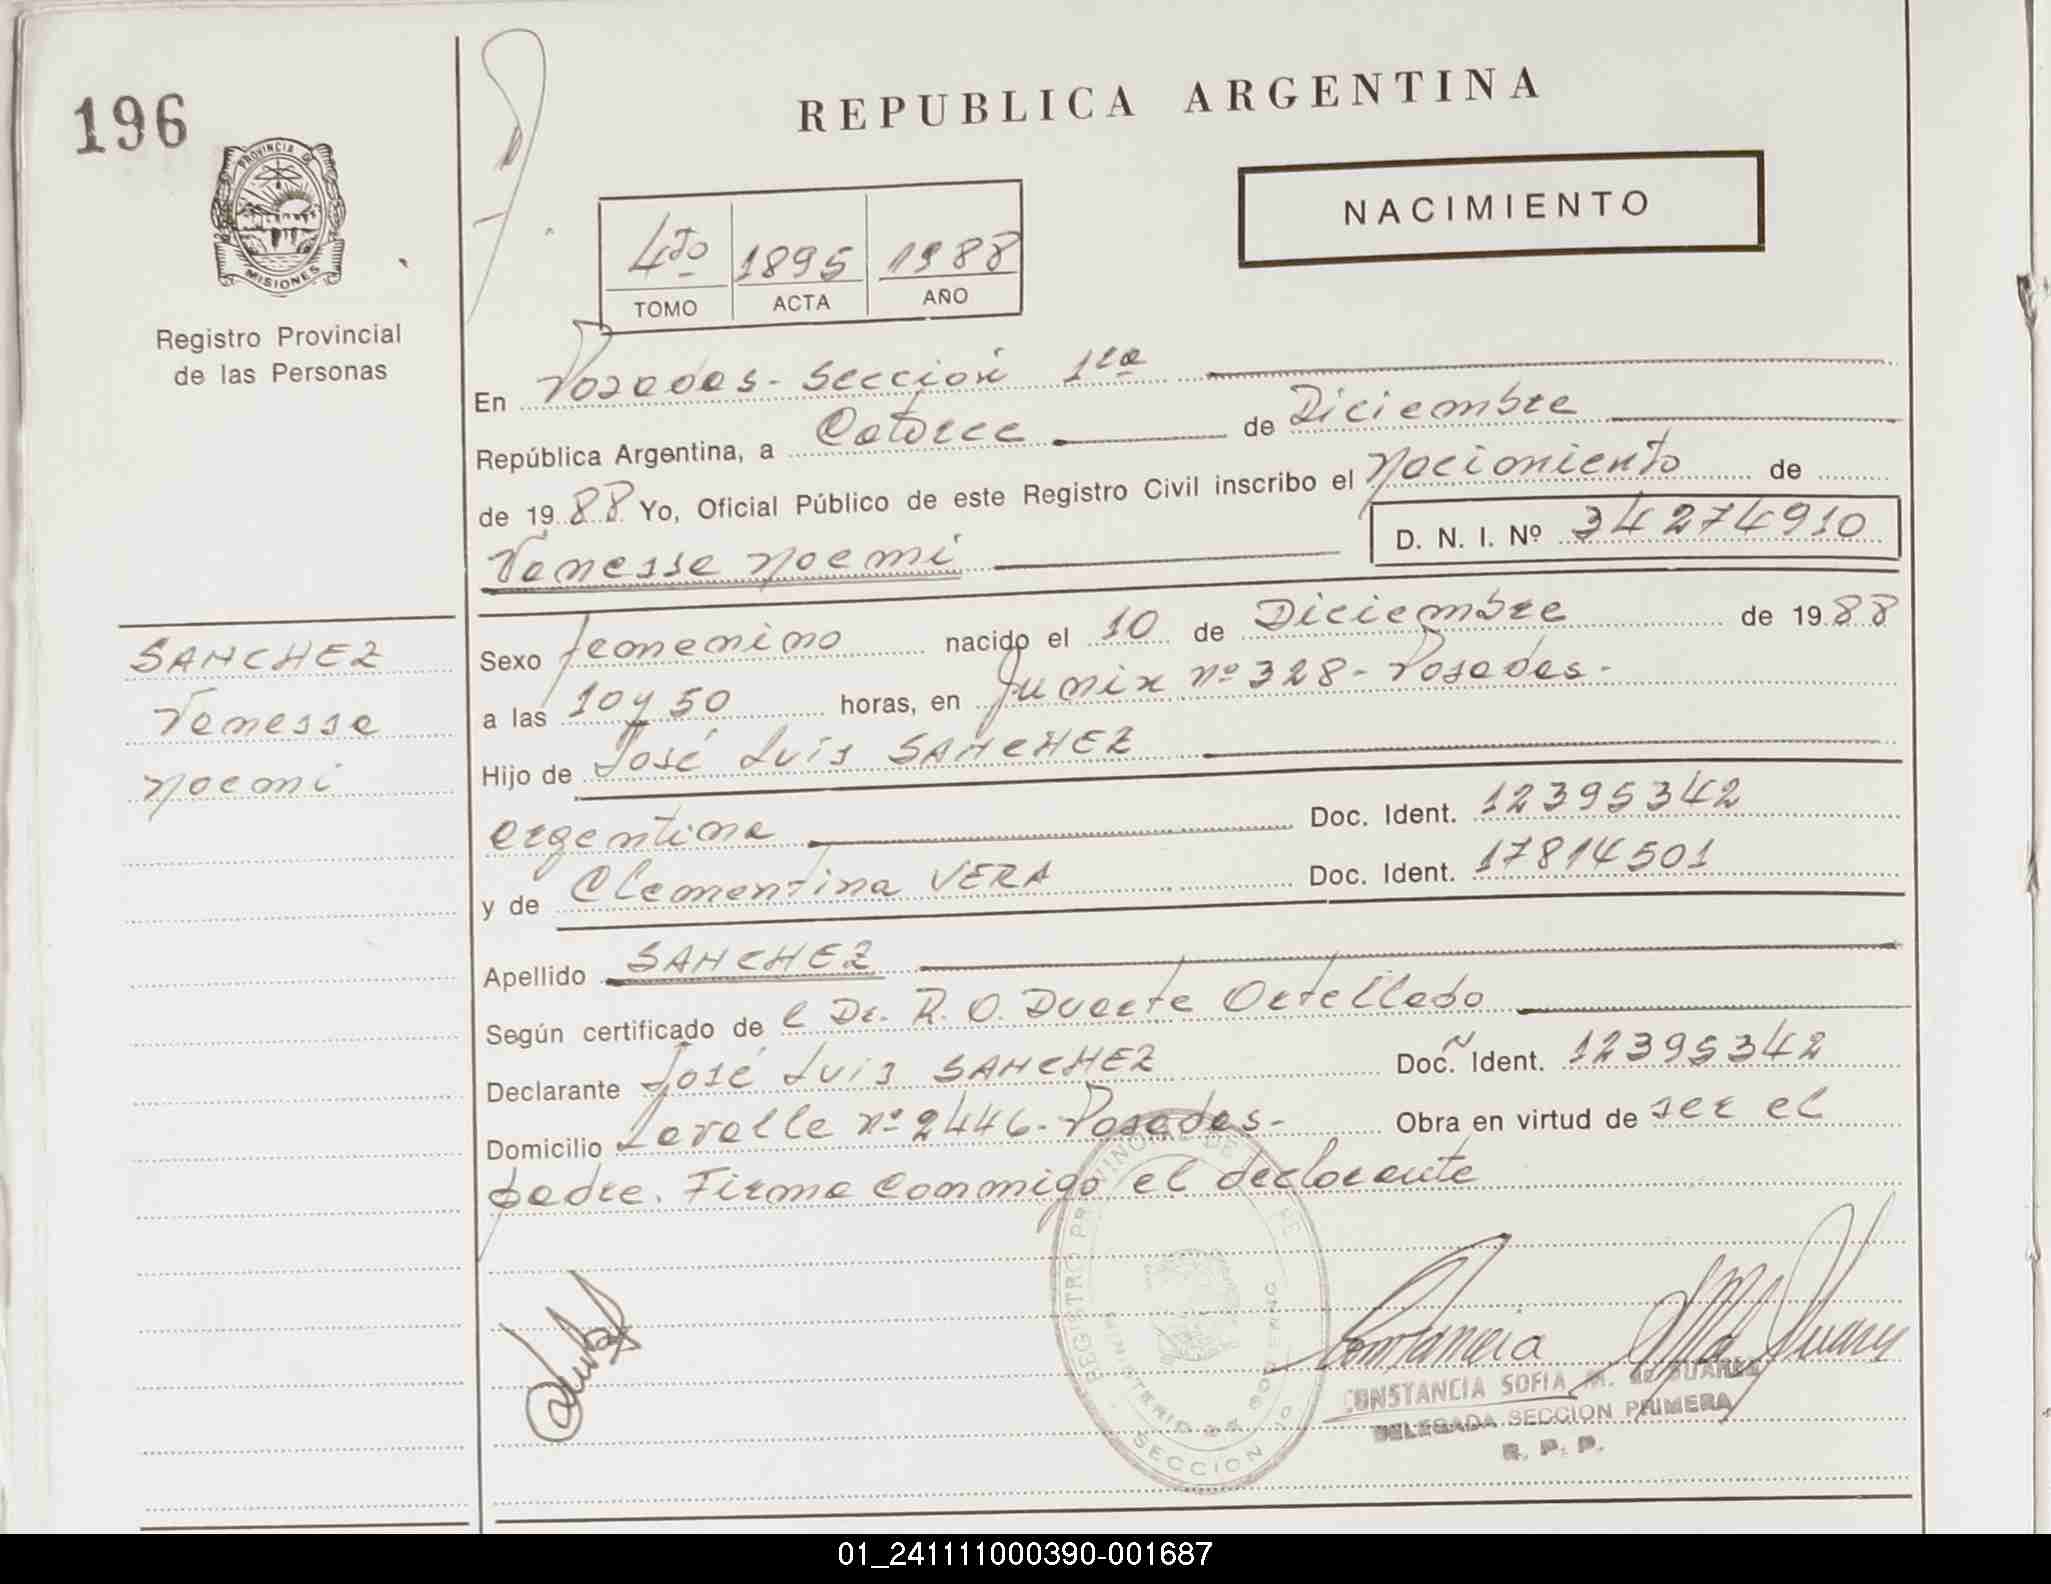 196
REPUBLICA ARGENTINA
NACIMIENTO
PROVINCIA DE
MISIONES
Registro Provincial
de las Personas
4to 1895 1988
TOMO ACTA AÑO
En Posadas - Sección 1ra
República Argentina, a Catorce de Diciembre
de 1988 Yo, Oficial Público de este Registro Civil inscribo el Nacimiento de
Vanessa Noemi D. N. I. Nº 34274910
SANCHEZ
Vanessa
Noemi
Sexo femenino nacido el 10 de Diciembre de 1988
a las 10 y 50 horas, en Junin nº 328 - Posadas -
Hijo de José Luis SANCHEZ
argentina Doc. Ident. 12395342
y de Clementina VERA Doc. Ident. 17814501
Apellido SANCHEZ
Según certificado de l Dr. R. O. Duarte Ortellado
Declarante José Luis SANCHEZ Doc. Ident. 12395342
Domicilio Lavalle nº 2446 - Posadas - Obra en virtud de ser el
padre. Firma conmigo el declarante
REGISTRO PROVINCIAL DE
MINISTERIO DE GOBIERNO
SECCION 1º
Constancia
CONSTANCIA SOFIA M. de SUAREZ
DELEGADA SECCION PRIMERA
R. P. P.
01_241111000390-001687